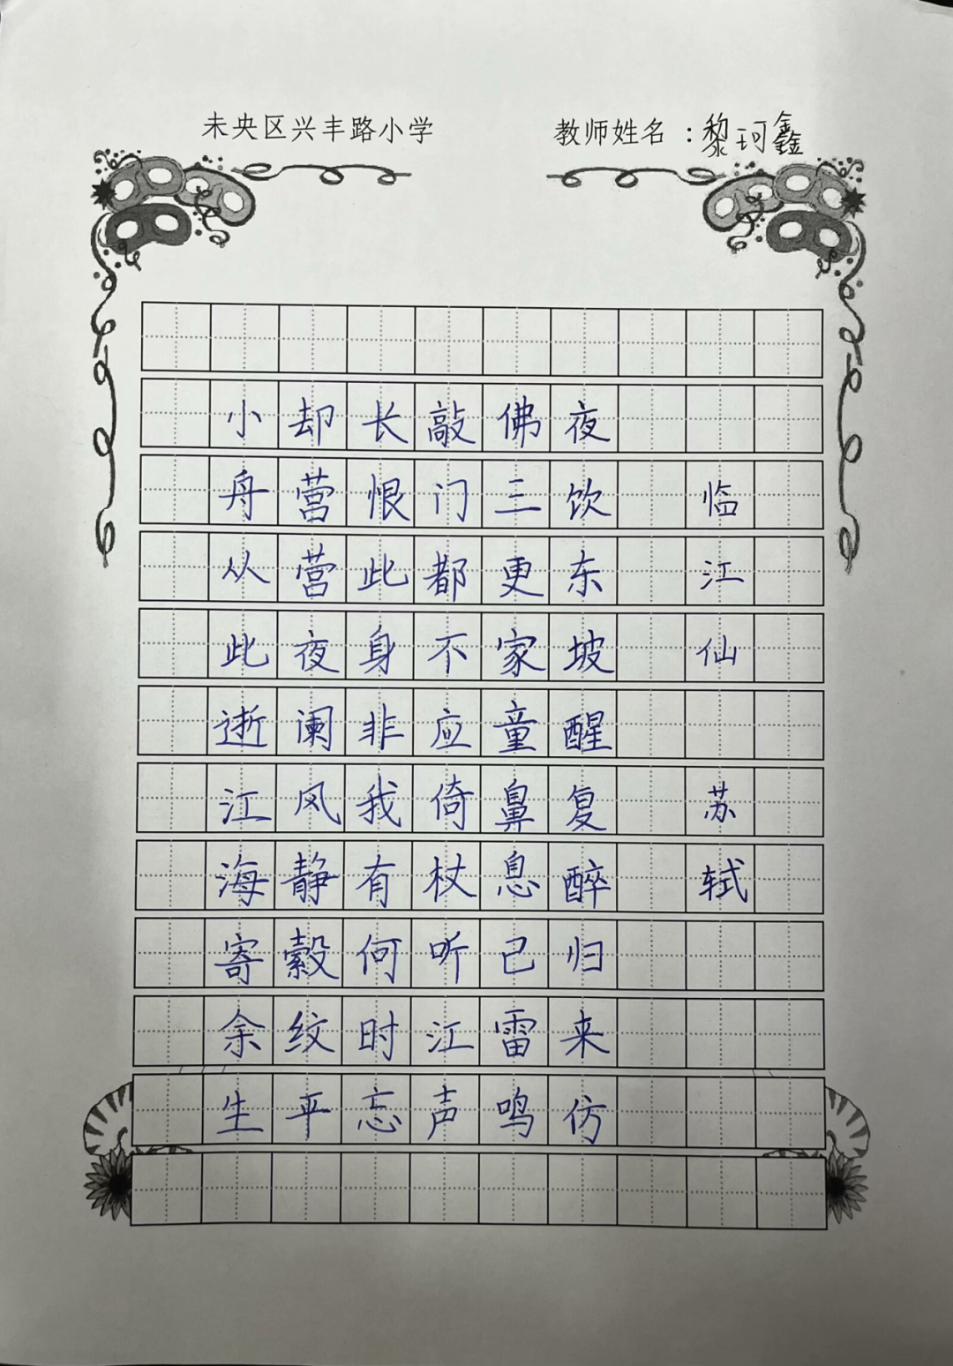 未央区兴丰路小学
教师姓名：黎珂鑫
临江仙 苏轼
夜饮东坡醒复醉归来仿
佛三更家童鼻息已雷鸣
敲门都不应倚杖听江声
长恨此身非我有何时忘
却营营夜阑风静縠纹平
小舟从此逝江海寄余生